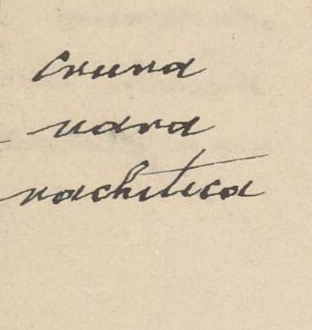 crura
vara
rachitica